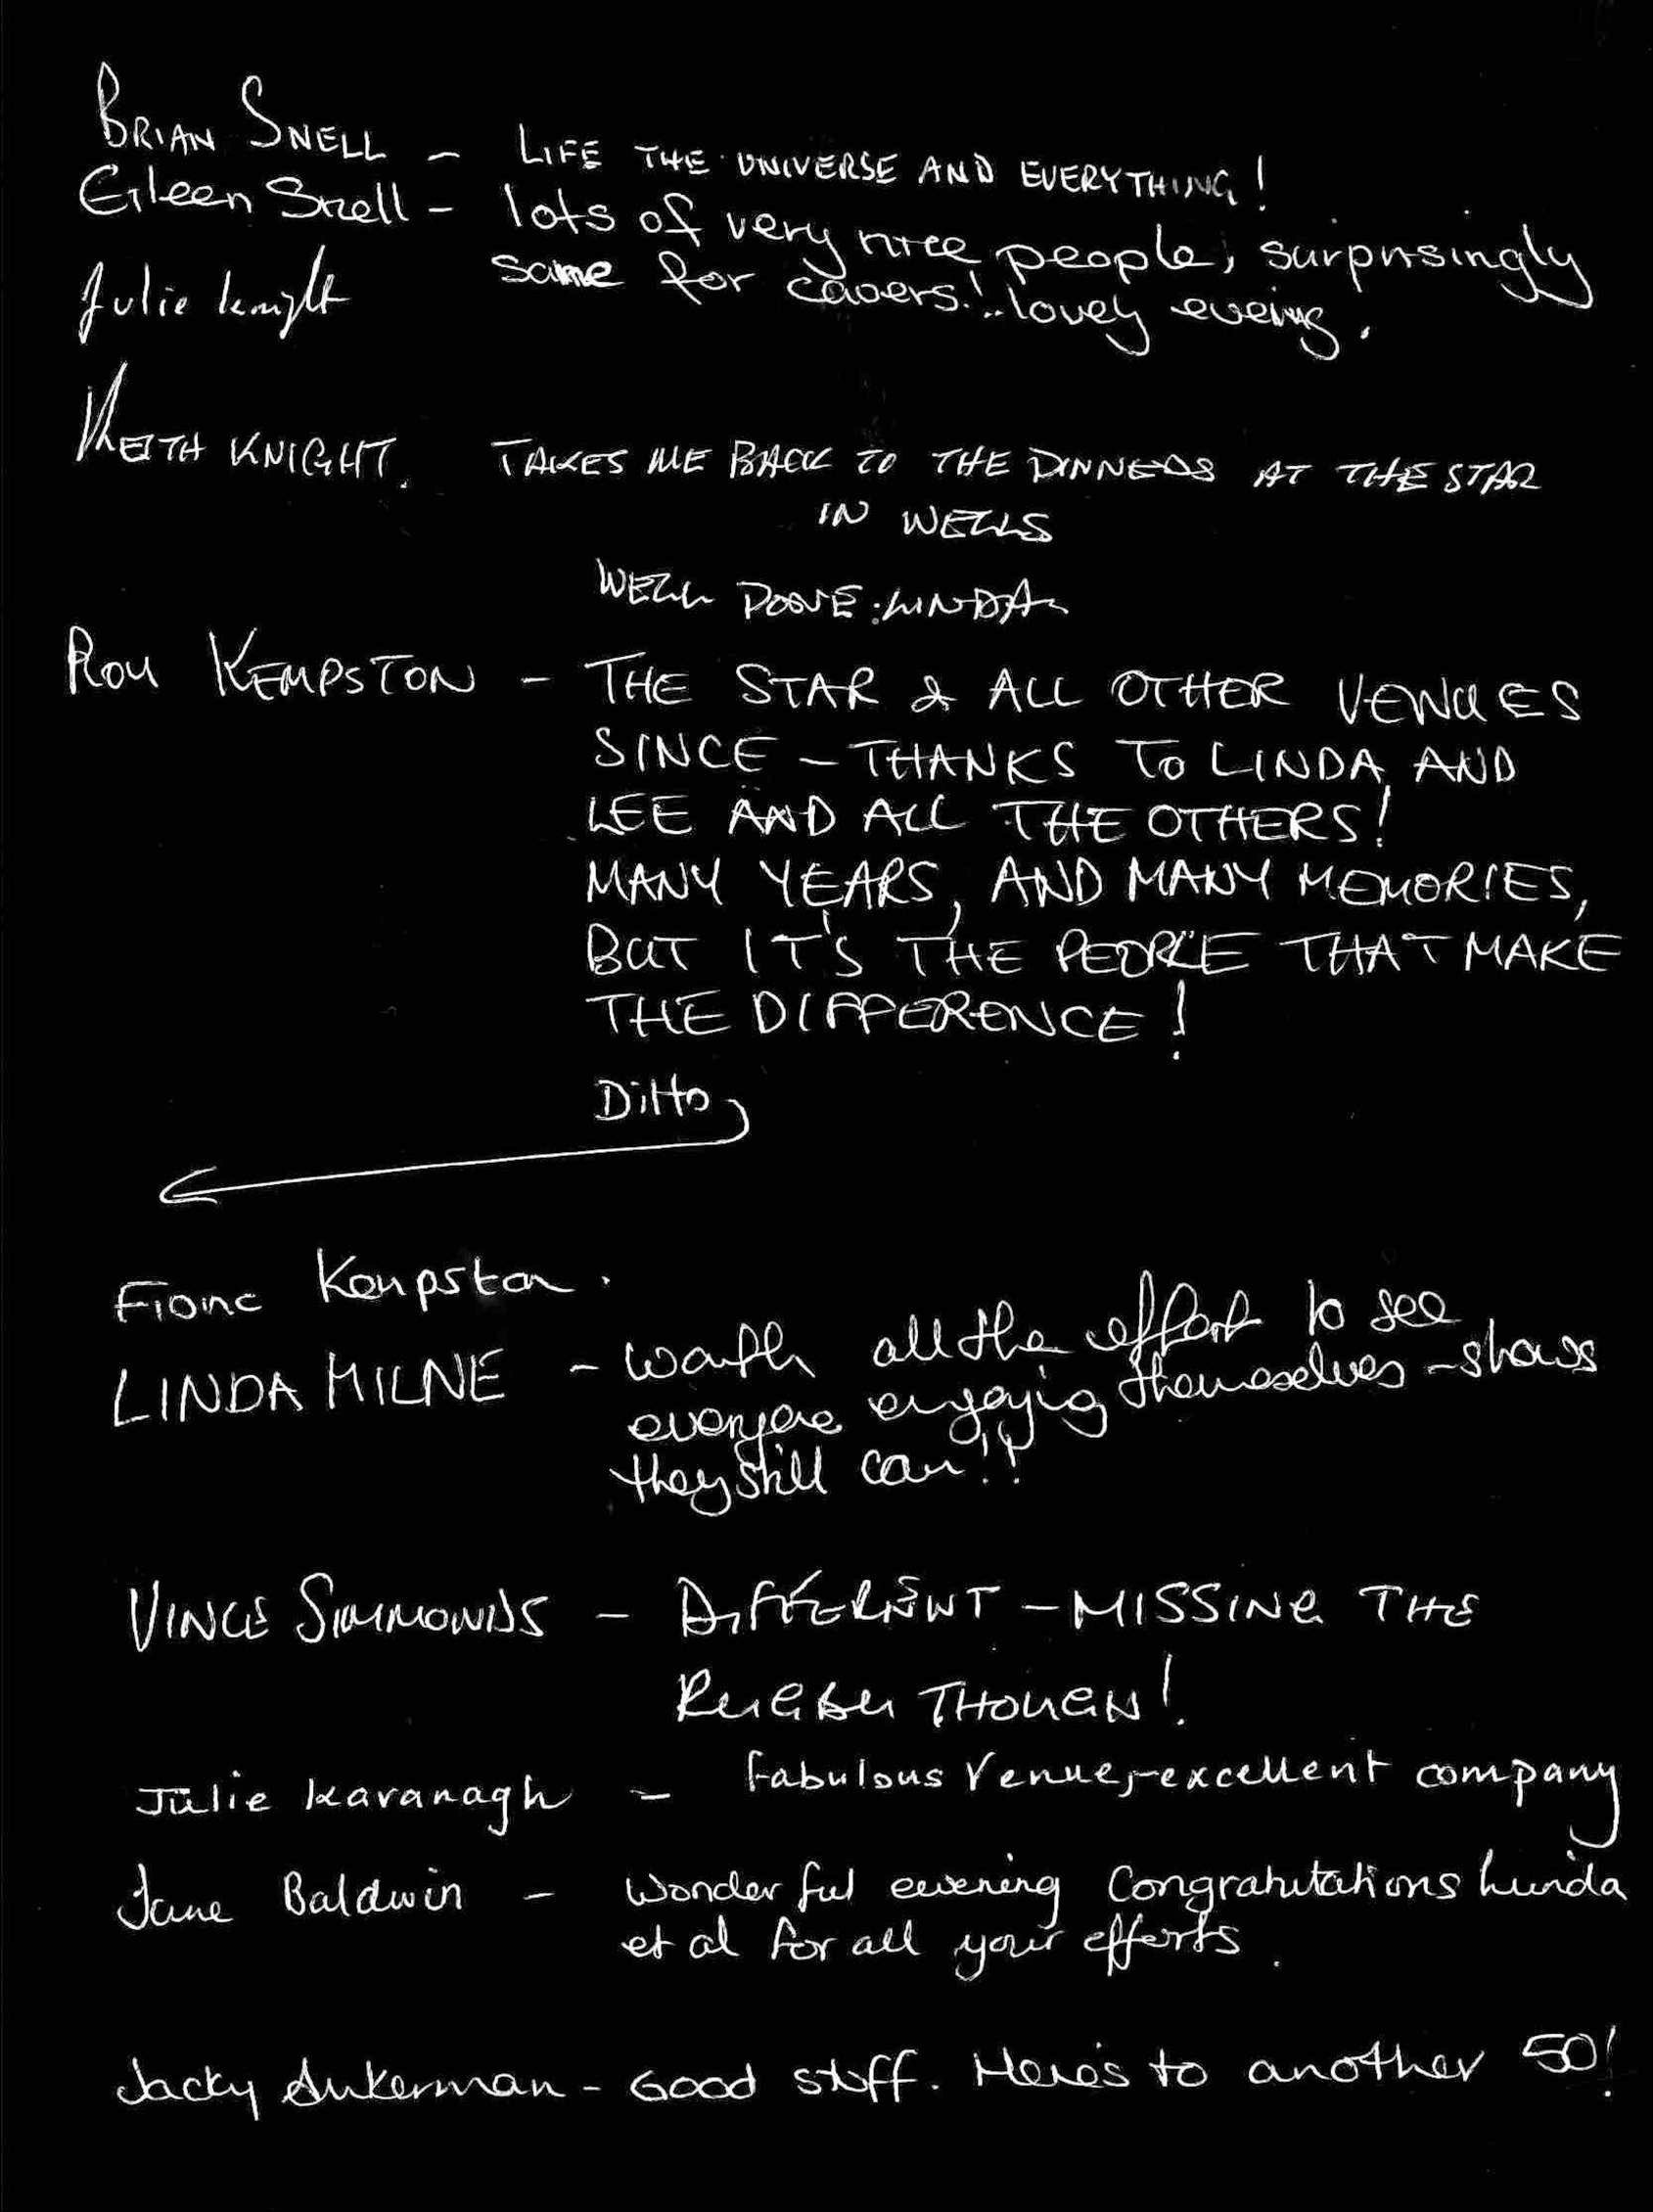 BRIAN SNELL – LIFE THE UNIVERSE AND EVERYTHING!
Eileen Snell – lots of very nice people, surprisingly
same for cavers!.. lovey eveing.
Julie Knight
KEITH KNIGHT. TAKES ME BACK TO THE DINNERS AT THE STAR
IN WELLS
WELL DONE LINDA
ROY KEMPSTON – THE STAR & ALL OTHER VENUES
SINCE – THANKS TO LINDA AND
LEE AND ALL THE OTHERS!
MANY YEARS, AND MANY MEMORIES,
BUT IT'S THE PEOPLE THAT MAKE
THE DIFFERENCE!
Ditto
Fiona Kempston.
LINDA MILNE – worth all the effort to see
everyone enjoying themselves – shows
they still can!!
VINCE SIMMONDS – DIFFERENT – MISSING THE
RUGBY THOUGH!
Julie Kavanagh – Fabulous Venue, excellent company
Jane Baldwin – Wonderful evening Congratulations Linda
et al for all your efforts.
Jacky Ankerman – Good stuff. Here's to another 50!